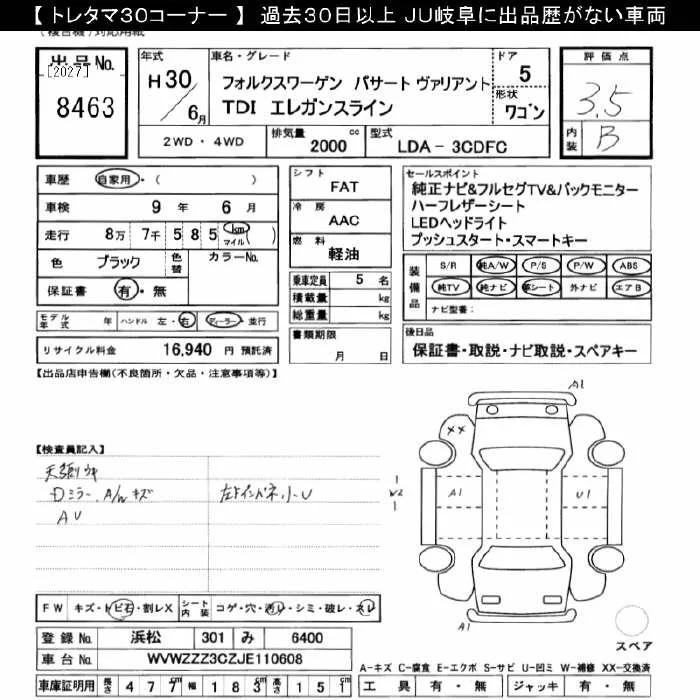 【トレタマ30コーナー】 過去30日以上 JU岐阜に出品歴がない車両
出品No.
[2027]
8463
年式
H30
6月
車名・グレード
フォルクスワーゲン パサート ヴァリアント
TDI エレガンスライン
ドア
5
形状
ワゴン
2WD・4WD
排気量
2000 cc
型式
LDA-3CDFC
評価点
3.5
内装
B
車歴 自家用・( )
車検 9年 6月
走行 8万 7千 585 km マイル ( )
色 ブラック 色替 カラーNo.
保証書 有・無
モデル年式 年 ハンドル 左・右 ディーラー・並行
リサイクル料金 16,940 円 預託済
シフト FAT
冷房 AAC
燃料 軽油
乗車定員 5 名
積載量 kg
総重量 kg
書類期限
月 日
セールスポイント
純正ナビ&フルセグTV&バックモニター
ハーフレザーシート
LEDヘッドライト
プッシュスタート・スマートキー
装備品
S/R 純A/W P/S P/W ABS
純TV 純ナビ 革シート 外ナビ エアB
ナビ型番:
後日品
保証書・取説・ナビ取説・スペアキー
【出品店申告欄(不良箇所・欠品・注意事項等)】
【検査員記入】
Dミラー、A/W キズ
AU
A1
XX
W2
A1
U1
A1
スペア
FW キズ・トビ石・割レX シート内装 コゲ・穴・汚レ・シミ・破レ・スレ
登録No. 浜松 301 み 6400
車台No. WVWZZZ3CZJE110608
車庫証明用 長さ 477cm 幅 183cm 高さ 151cm
A-キズ C-腐食 E-エクボ S-サビ U-凹ミ W-補修 XX-交換済
工具 有・無 ジャッキ 有・無